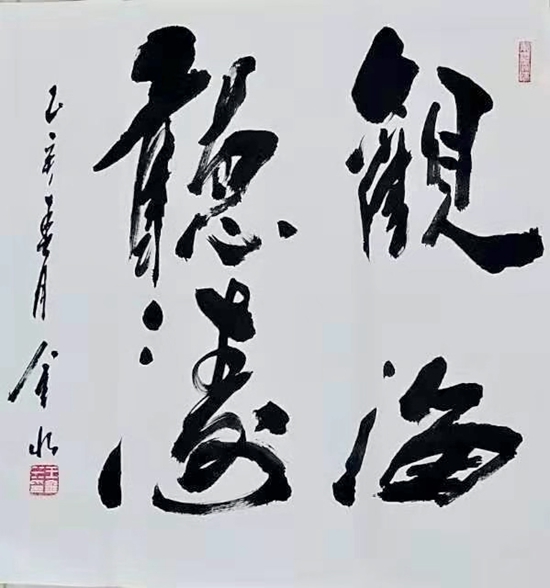 觀海
聽濤
己亥春月金水